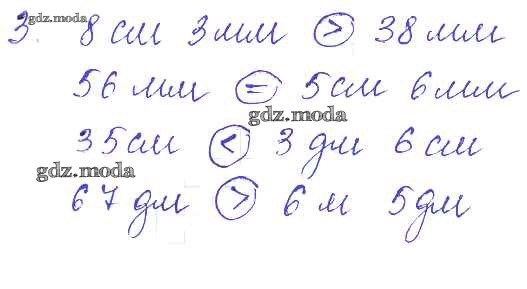 3. gdz.moda 8 см 3 мм > 38 мм
56 мм = 5 см 6 мм
gdz.moda
35 см < 3 дм 6 см
gdz.moda
67 дм > 6 м 5 дм